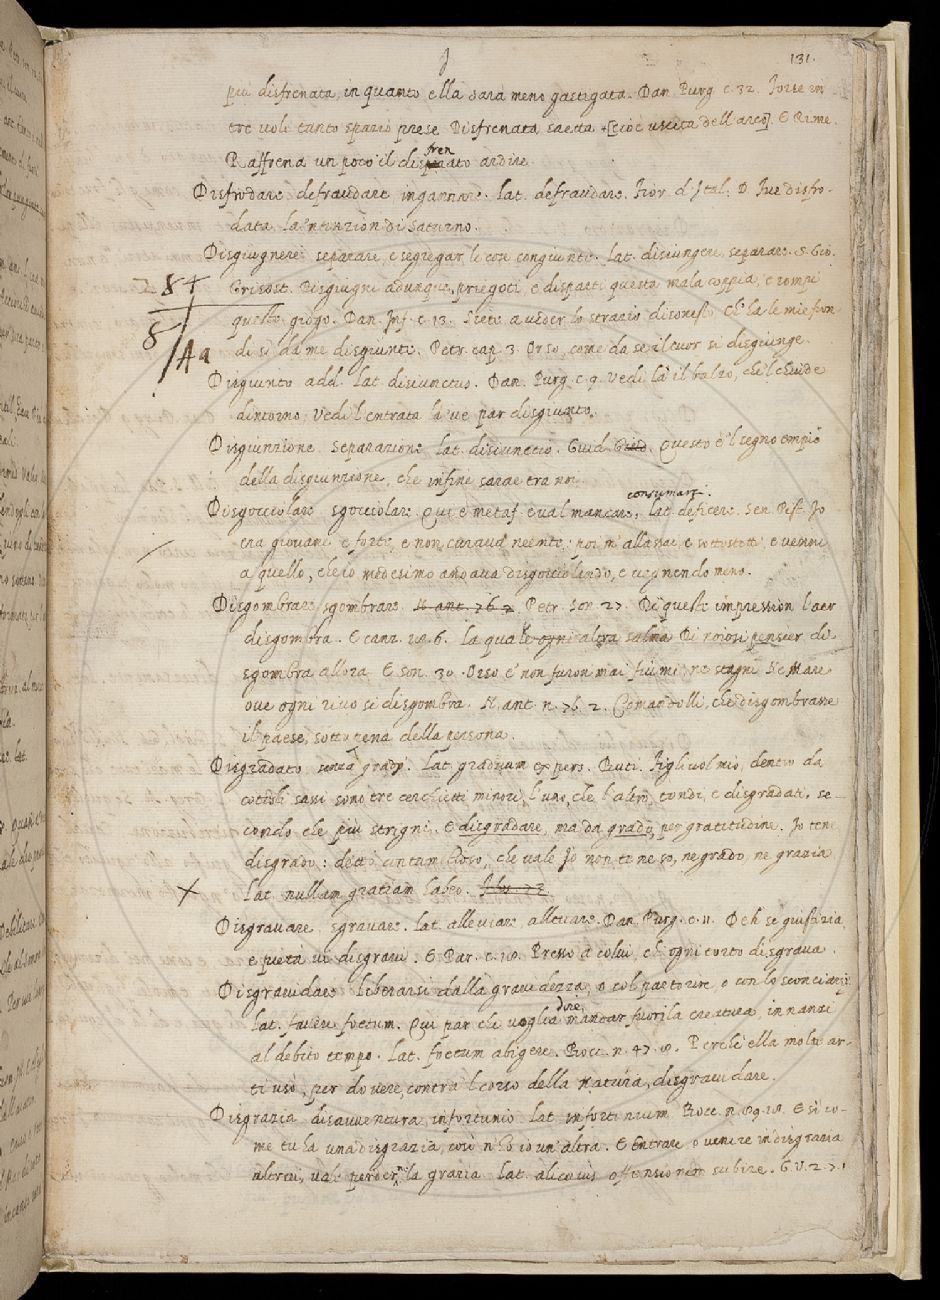 131.
più disfrenata, in quanto ella sarà meno gastigata. Dan. Purg. c. 32. Forse in
tre voli tanto spazio prese Disfrenata saetta [cioè uscita dell'arco]. E Rime.
Raffrena un poco il disfrenato ardire.
Disfrodare defraudare, ingannare. lat. defraudare. Fior. d'Ital. D. Fue disfro-
data la 'ntenzion di Saturno.
Disgiugnere separare, e segregar le cose congiunte. lat. disiungere, separare. S. Gio.
Grisost. Disgiugni adunque, priegoti, e disparti questa mala coppia, e rompi
questo giogo. Dan. Inf. c. 13. Siete a veder lo strazio disonesto Ch'ha le mie fron
di sì da me disgiunte. Petr. cap. 3. Orso, come da se il cuor si disgiunge.
284
8/Aa
Disgiunto add. lat. disiunctus. Dan. Purg. c. 9. Vedi là il balzo, che 'l chiude
dintorno Vedi l'entrata là 've par disgiunto.
Disgiunzione separazione lat. disiunctio. Guid. Questo è 'l segno empio
della disgiunzione, che infine sarae tra noi.
Disgocciolare sgocciolare. Qui è metaf. e val mancare, consumarsi. lat. deficere. Sen. Pist. Io
era giovane e forte, e non curava neente, poi m'allassai, e sottostetti, e venni
a quello, che io medesimo andava disgocciolando, e vegnendo meno.
Disgombrare sgombrare. N. ant. 76. 2. Petr. Son. 27. Di queste impression l'aer
disgombra. E canz. 28. 6. La quale ogni altra salma Di noiosi pensier di-
sgombra allora. E son. 30. Orso e' non furon mai fiumi, ne stagni Ne Mare
ove ogni rivo si disgombra. N. ant. n. 76. 2. Comandolli, che disgombrasse
il paese, sotto pena della persona.
Disgradato senza gradi. Lat. graduum expers. Buti. Figliuol mio, dentro da
cotesti sassi sono tre cerchietti minori, l'uno, che l'altro, tondi, e disgradati, se-
condo che più strigni. E disgradare, ma da grado, per gratitudine. Io tene
disgrado: detto antum closo, che vale Io non te ne so, ne grado, ne grazia
Lat. nullam gratiam habeo.
Disgravare, sgravare. lat. alleviare, allevare. Dan. Purg. c. 11. Deh se giustizia,
e pietà vi disgrevi. E Par. c. 18. Presso a colui, ch'ogni torto disgrava.
Disgravidare liberarsi dalla gravidezza, o col partorire, o con lo sconciarsi.
lat. fundere foetum. Qui par che voglia dire mandar fuori la creatura, innanzi
al debito tempo. Lat. foetum abigere. Bocc. n. 47. 8. Perchè ella molte ar-
ti usò, per dovere, contra 'l corso della natura, disgravidare.
Disgrazia disavventura, infortunio. lat. infortunium. Bocc. n. 89. 18. E sì co-
me tu ha una disgrazia, così n'ho io un'altra. E Entrare, o venire in disgrazia
altrui, vale perdern la grazia. lat. alicuius offensionem subire. G. V. 2. 7. 1